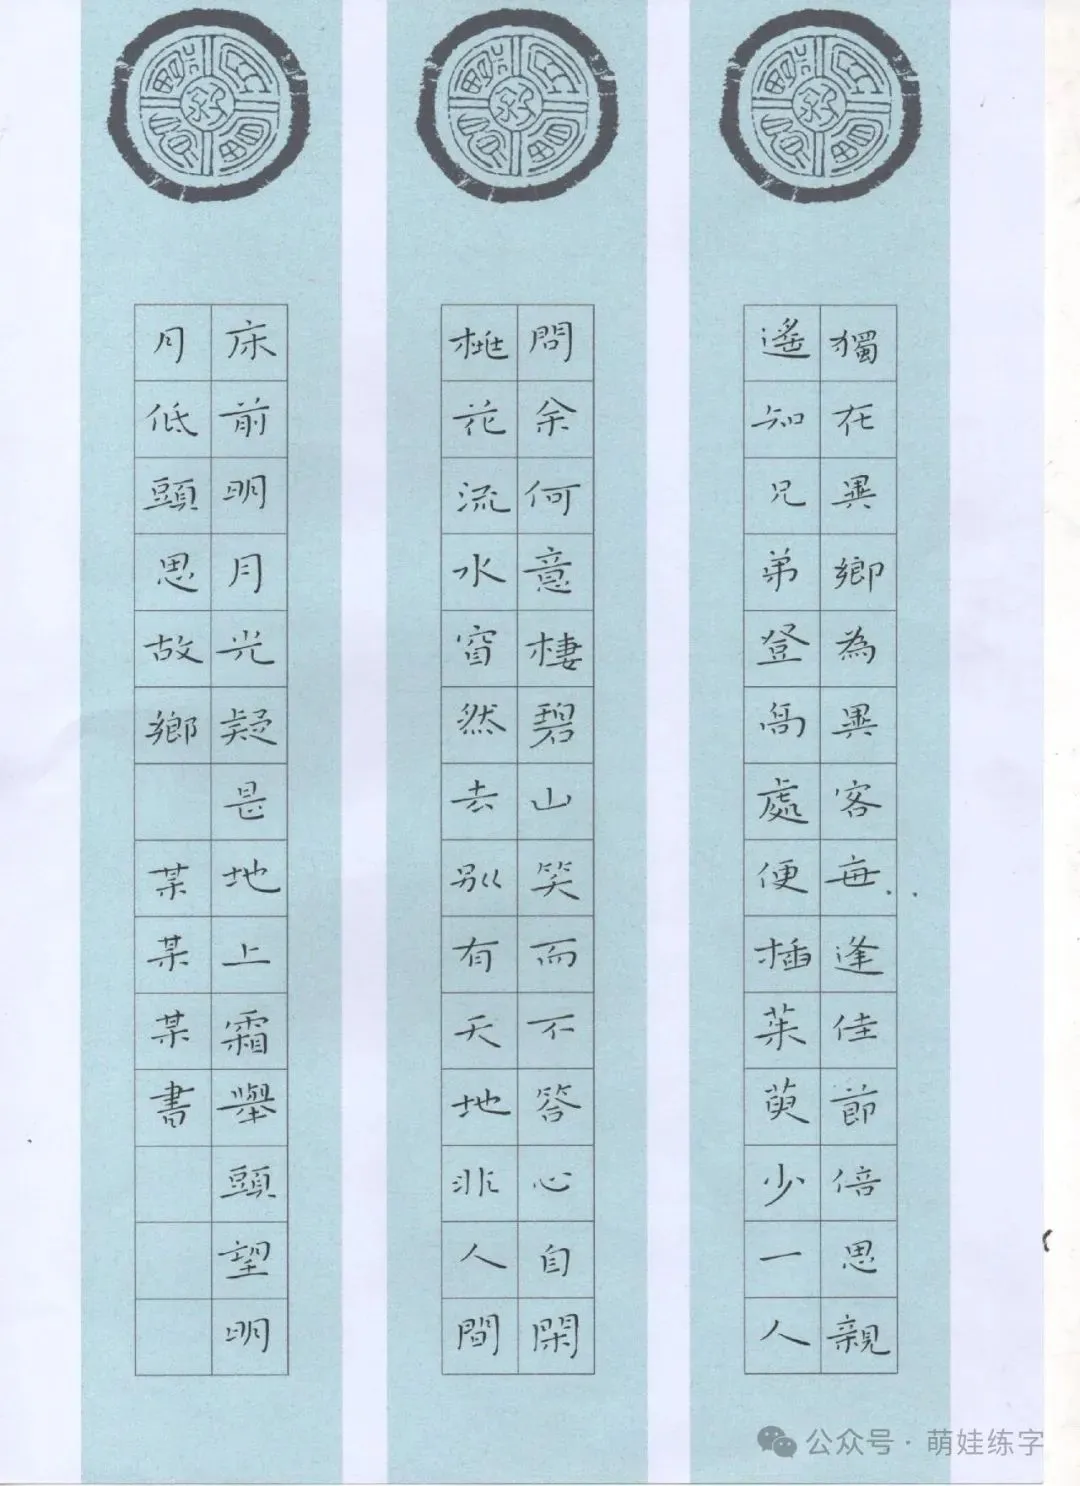 獨在異鄉為異客每逢佳節倍思親
遙知兄弟登高處便插茱萸少一人
問余何意棲碧山笑而不答心自閑
桃花流水窅然去别有天地非人間
床前明月光疑是地上霜舉頭望明
月低頭思故鄉
某某某書
公众号·萌娃练字